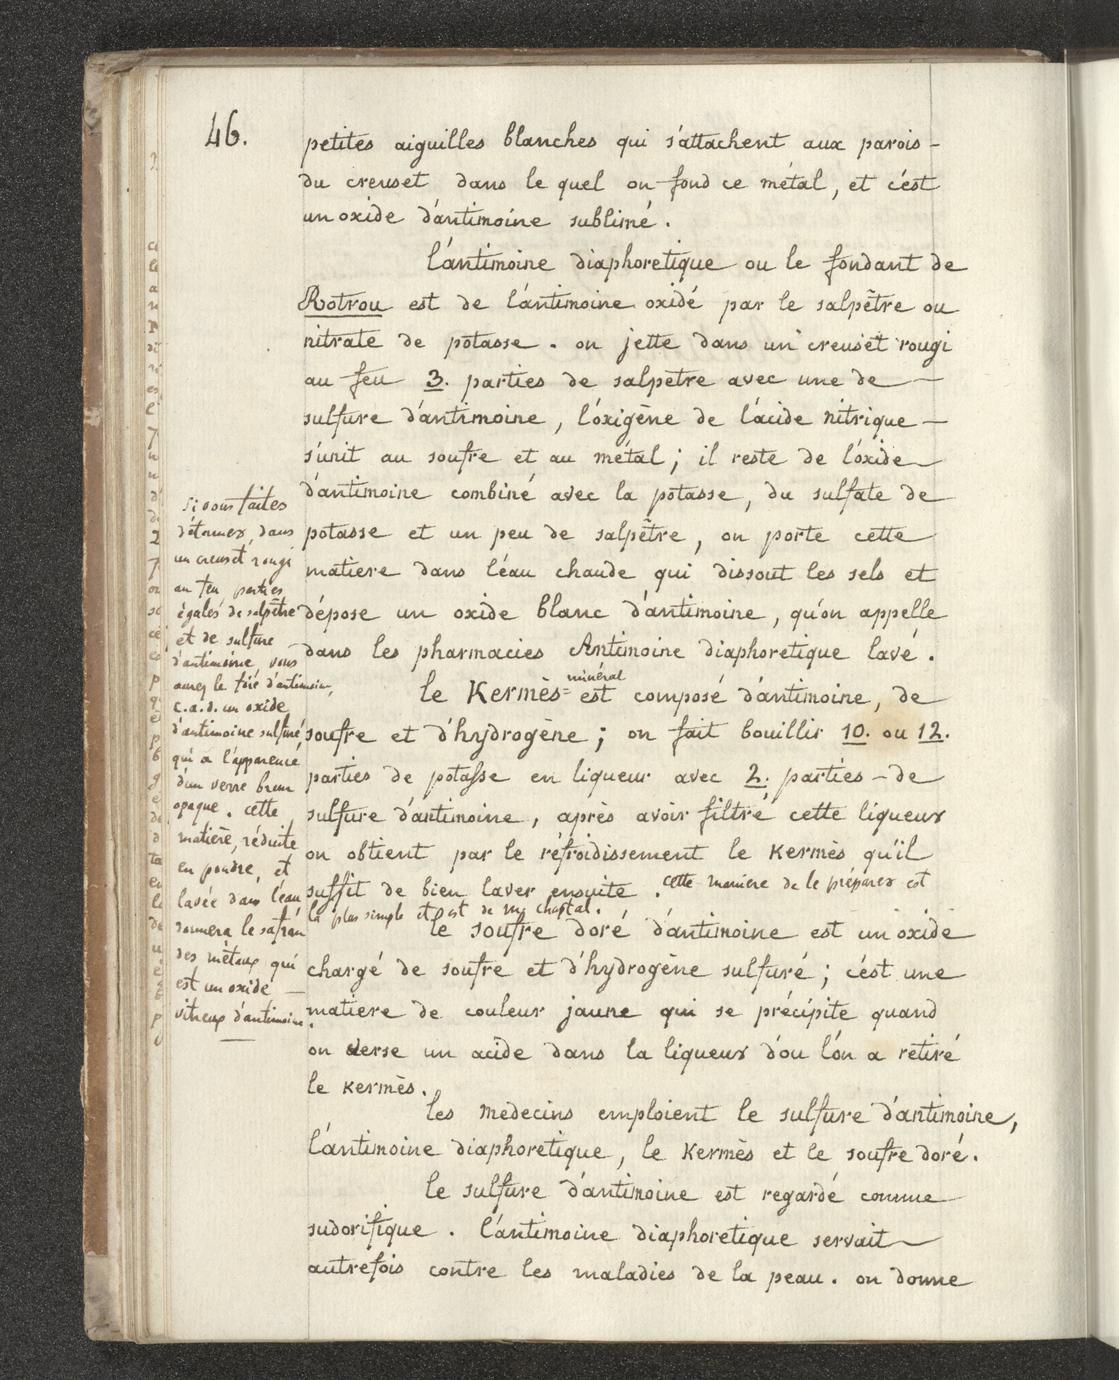 46.
petites aiguilles blanches qui s'attachent aux parois -
du creuset dans le quel on fond ce métal, et c'est
un oxide d'antimoine sublimé.
l'antimoine diaphoretique ou le fondant de
Rotrou est de l'antimoine oxidé par le salpêtre ou
nitrate de potasse. on jette dans un creuset rougi
au feu 3. parties de salpetre avec une de —
sulfure d'antimoine, l'óxigène de l'ácide nitrique —
s'unit au soufre et au métal; il reste de l'oxide
d'antimoine combiné avec la potasse, du sulfate de
potasse et un peu de salpêtre, on porte cette
matiere dans l'eau chaude qui dissout les sels et
dépose un oxide blanc d'antimoine, qu'on appelle
dans les pharmacies Antimoine diaphoretique lavé.
le Kermès = minéral est composé d'antimoine, de
soufre et d'hydrogène; on fait bouillir 10. ou 12.
parties de potasse en liqueur avec 2. parties - de
sulfure d'antimoine, après avoir filtré cette liqueur
on obtient par le réfroidissement le Kermès qu'il
suffit de bien laver ensuite. cette maniere de le préparer est
la plus simple et est de mr. chaptal.
le soufre doré d'antimoine est un oxide
chargé de soufre et d'hydrogène sulfuré; c'est une
matiere de couleur jaune qui se précipite quand
on verse un acide dans la liqueur d'ou l'on a rétiré
le Kermès.
les medecins emploient le sulfure d'antimoine,
l'antimoine diaphoretique, le Kermès et le soufre doré.
le sulfure d'antimoine est regardé comme
sudorifique. l'antimoine diaphoretique servait
autrefois contre les maladies de la peau. on donne
si vous faites
détonner, dans
un creuset rougi
au feu parties
égales de salpêtre
et de sulfure
d'antimoine, vous
aurez le foie d'antimoine,
c.a.d. un oxide
d'antimoine sulfuré,
qui a l'apparence
d'un verre brun
opaque. cette
matière, réduite
en poudre, et
lavée dans l'eau
donnera le safran
des métaux qui
est un oxide —
vitreux d'antimoine.